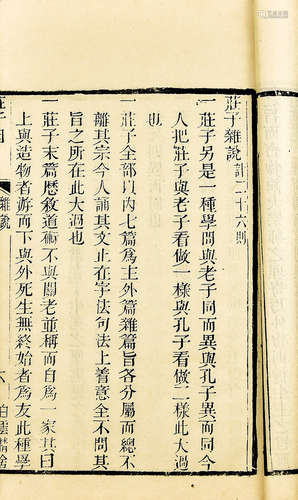 莊子雜說計二十六則
一莊子另是一種學問與老子同而異與孔子異而同今
人把莊子與老子看做一樣與孔子看做二樣此大過
也
一莊子全部以內七篇爲主外篇雜篇旨各分屬而總不
離其宗今人誦其文止在字法句法上着意全不問其
旨之所在此大過也
一莊子末篇歷敘道術不與關老並稱而自爲一家其曰
上與造物者游而下與外死生無終始者爲友此種學
莊子因
雜說
六
白雲精舍